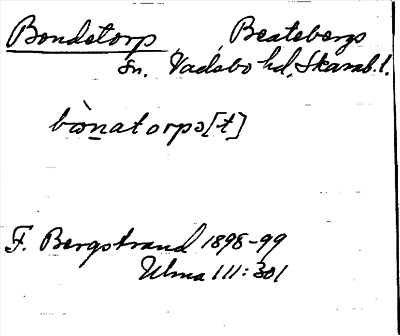 Bondetorp, Beatebergs
sn. Vadsbo hd, Skarab. l.
bò̀n̲atorpə[t]
F. Bergstrand 1898-99
Ulma 111:301